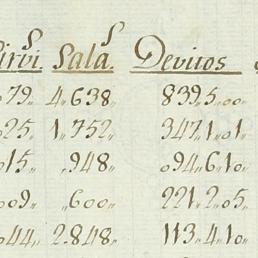 Sirvi.s Sala.s Devitos
079,, 4,,638,, 839,,5,,00,,
025,, 1,,752,, 347,,1,,01,,
015,, ,,948,, 094,,6,,10,,
009,, ,,600,, 221,,2,,05,,
044,, 2,,848,, 113,,4,,10,,